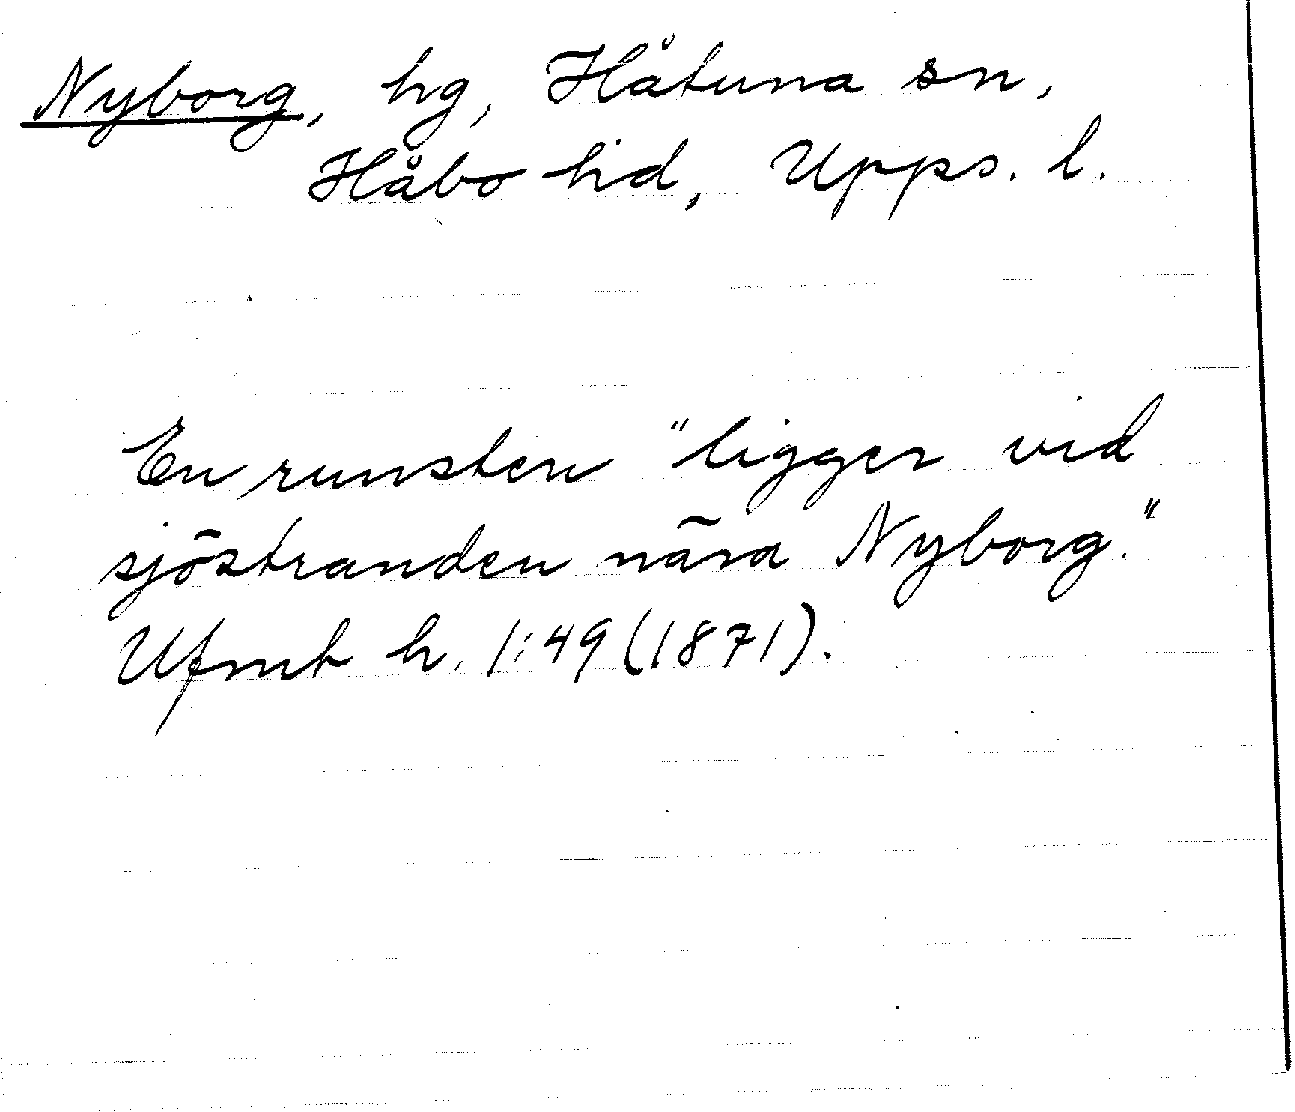 Nyborg, hg, Håtuna sn,
Håbo hd, Upps. l.
En runsten "ligger vid
sjöstranden nära Nyborg."
Ufmt h. 1:49 (1871).